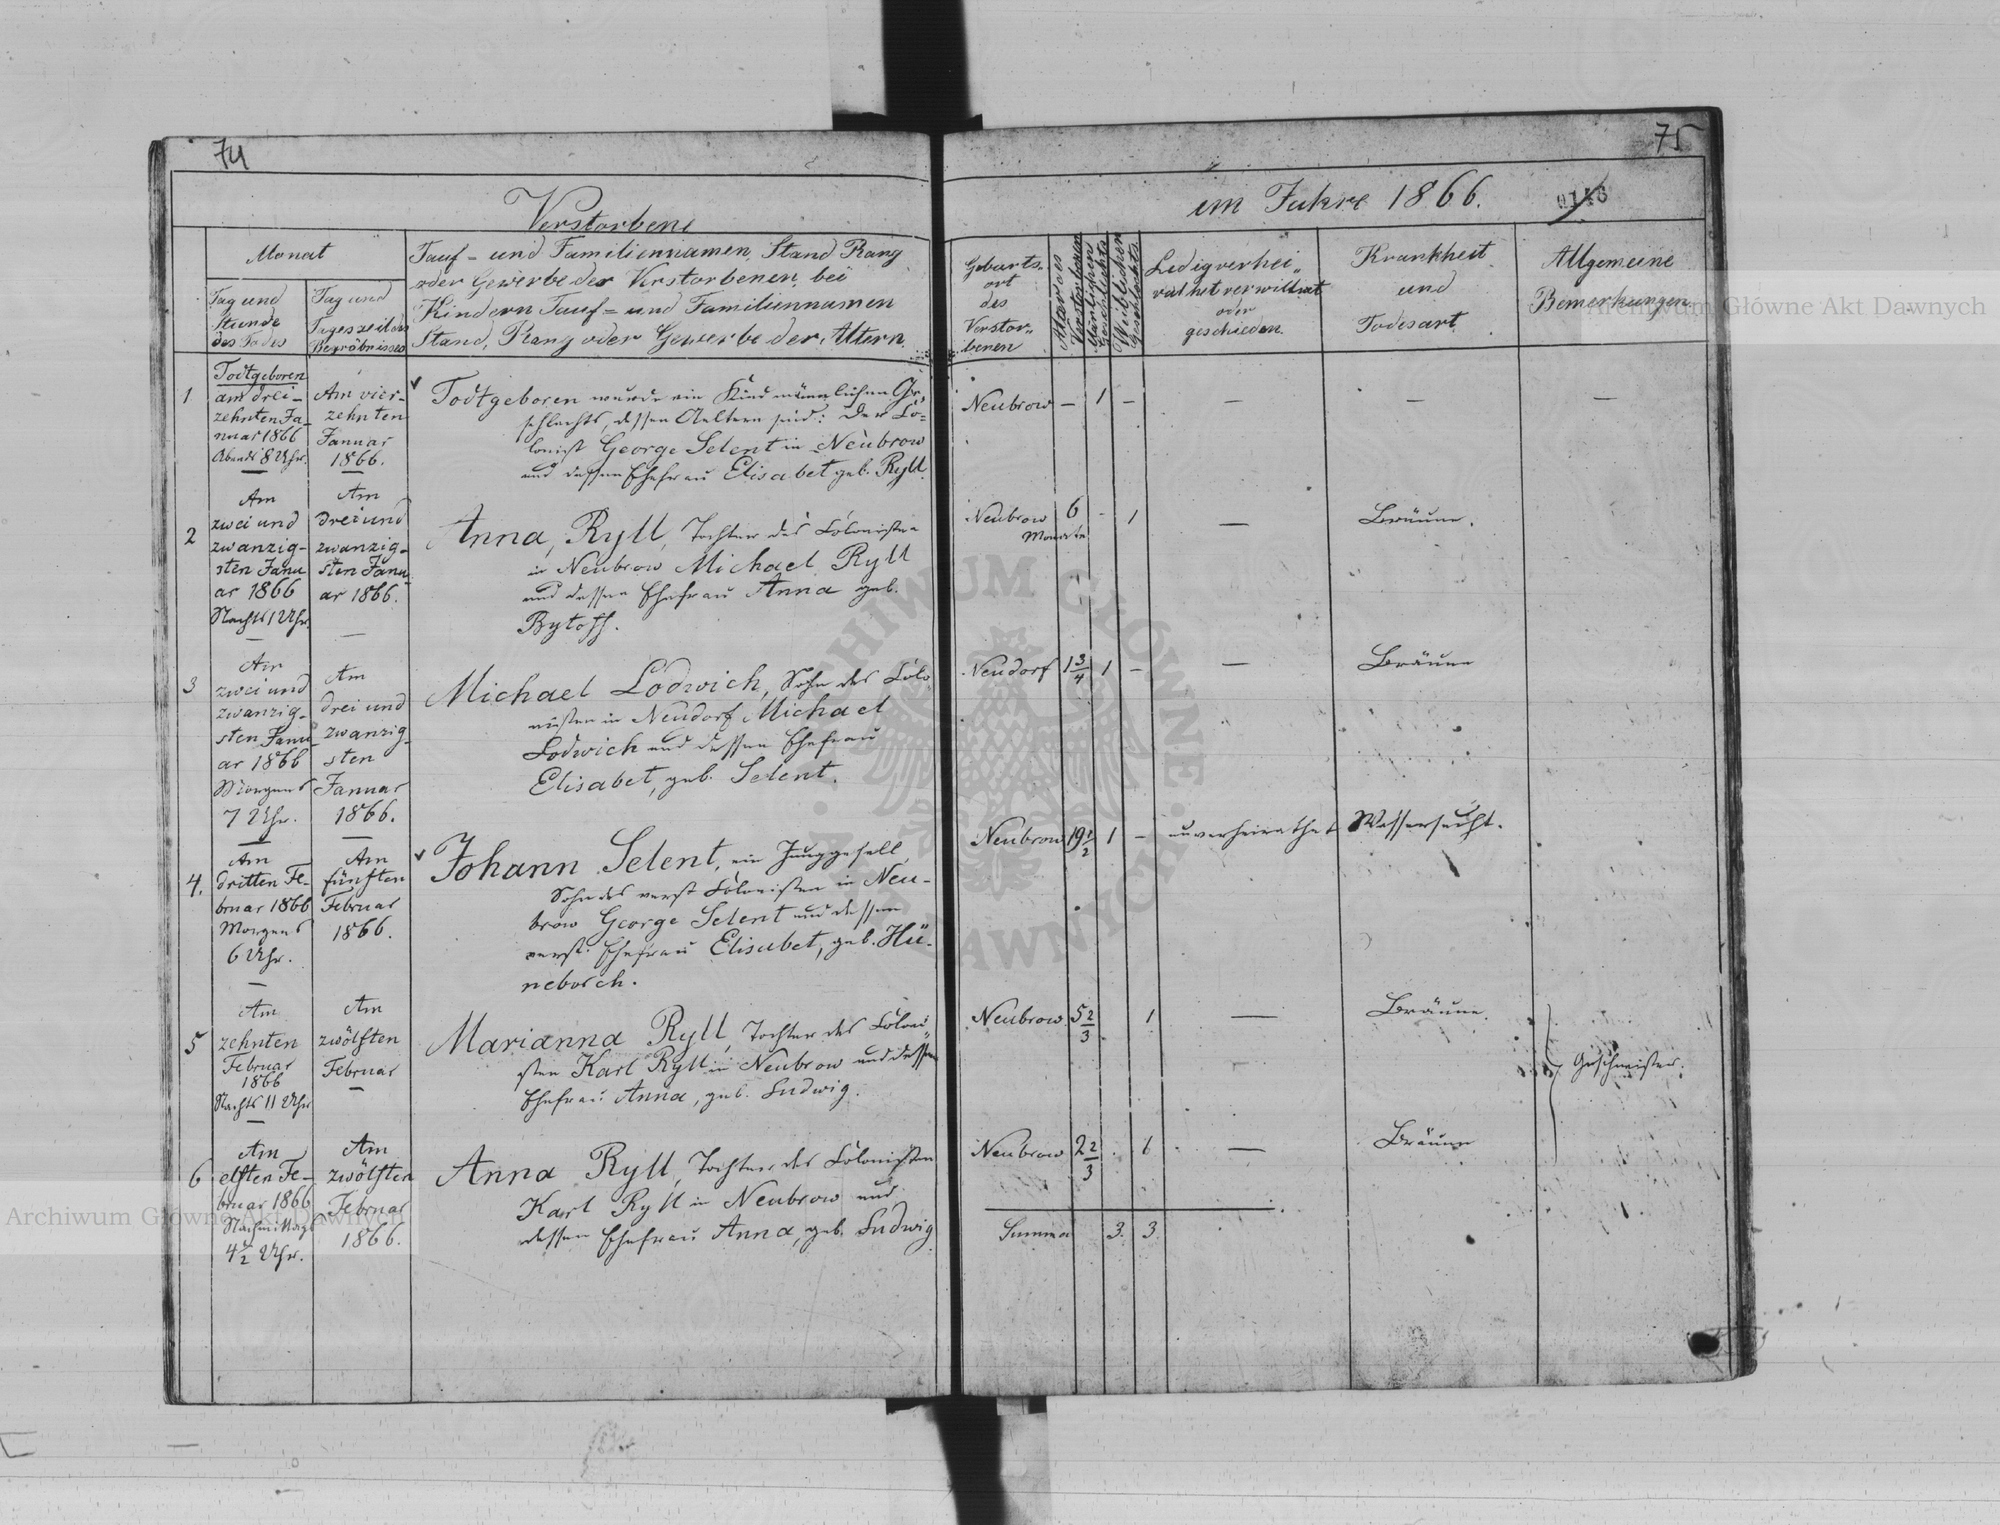 74
Verstorbene
Monat
Tag und
Stunde
des Todes
Tag und
Tageszeit des
Begräbnisses
Tauf- und Familiennamen, Stand Rang
oder Gewerbe der Verstorbenen, bei
Kindern Tauf- und Familiennamen
Stand, Rang oder Gewerbe der Altern.
1
Todtgeboren
am drei-
zehnten Ja-
nuar 1866
Abends 8 Uhr.
Am vier-
zehnten
Januar
1866.
Todtgeboren wurde ein Kind männlichen Ge-
schlechts, dessen Aeltern sind: der Co-
lonist George Selent in Neubrow
und dessen Ehefrau Elisabet geb. Ryll.
2
Am
zwei und
zwanzig-
sten Janu
ar 1866
Nachts 1 Uhr.
Am
drei und
zwanzig-
sten Janu
ar 1866.
Anna, Ryll, Tochter des Colonisten
in Neubrow Michael Ryll
und dessen Ehefrau Anna geb.
Bytoff.
3
Am
zwei und
zwanzig-
sten Janu
ar 1866
Morgens
7 Uhr.
Am
drei und
zwanzig-
sten
Januar
1866.
Michael Lodwich, Sohn des Colo
nisten in Neudorf Michael
Lodwich und dessen Ehefrau
Elisabet, geb. Selent.
4.
Am
dritten Fe-
bruar 1866
Morgens
6 Uhr.
Am
fünften
Februar
1866.
Johann Selent, ein Junggesell,
Sohn des verst Colonisten in Neu-
brow George Selent und dessen
verst. Ehefrau Elisabet, geb. Hü-
neborch.
5
Am
zehnten
Februar
1866
Nachts 11 Uhr
Am
zwölften
Februar
Marianna Ryll, Tochter des Coloni-
sten Karl Ryll in Neubrow und dessen
Ehefrau Anna, geb. Ludwig.
6
Am
elften Fe-
bruar 1866
Nachmittags
4½ Uhr.
Am
zwölften
Februar
1866.
Anna Ryll, Tochter des Colonisten
Karl Ryll in Neubrow und
dessen Ehefrau Anna, geb. Ludwig
75
im Jahre 1866.
Geburts-
ort
des
Verstor-
benen
Alter des
Verstorbenen
Männlichen
Geschlechts
Weiblichen
Geschlechts
Ledig verhei-
rathet verwittwet
oder
geschieden
Krankheit
und
Todesart
Allgemeine
Bemerkungen
Neubrow — 1 — — — —
Neubrow 6 - 1 — Bräune.
Monate
Neudorf 1¾ 1 — — Bräune
Neubrow 19½ 1 — unverheirathet Wassersucht.
Neubrow 5⅔ 1 — Bräune.
Geschwister.
Neubrow 2⅔ 1 — Bräune
Summa 3. 3.
Archiwum Główne Akt Dawnych
Archiwum Główne Akt Dawnych
ARCHIWUM GŁÓWNE AKT DAWNYCH